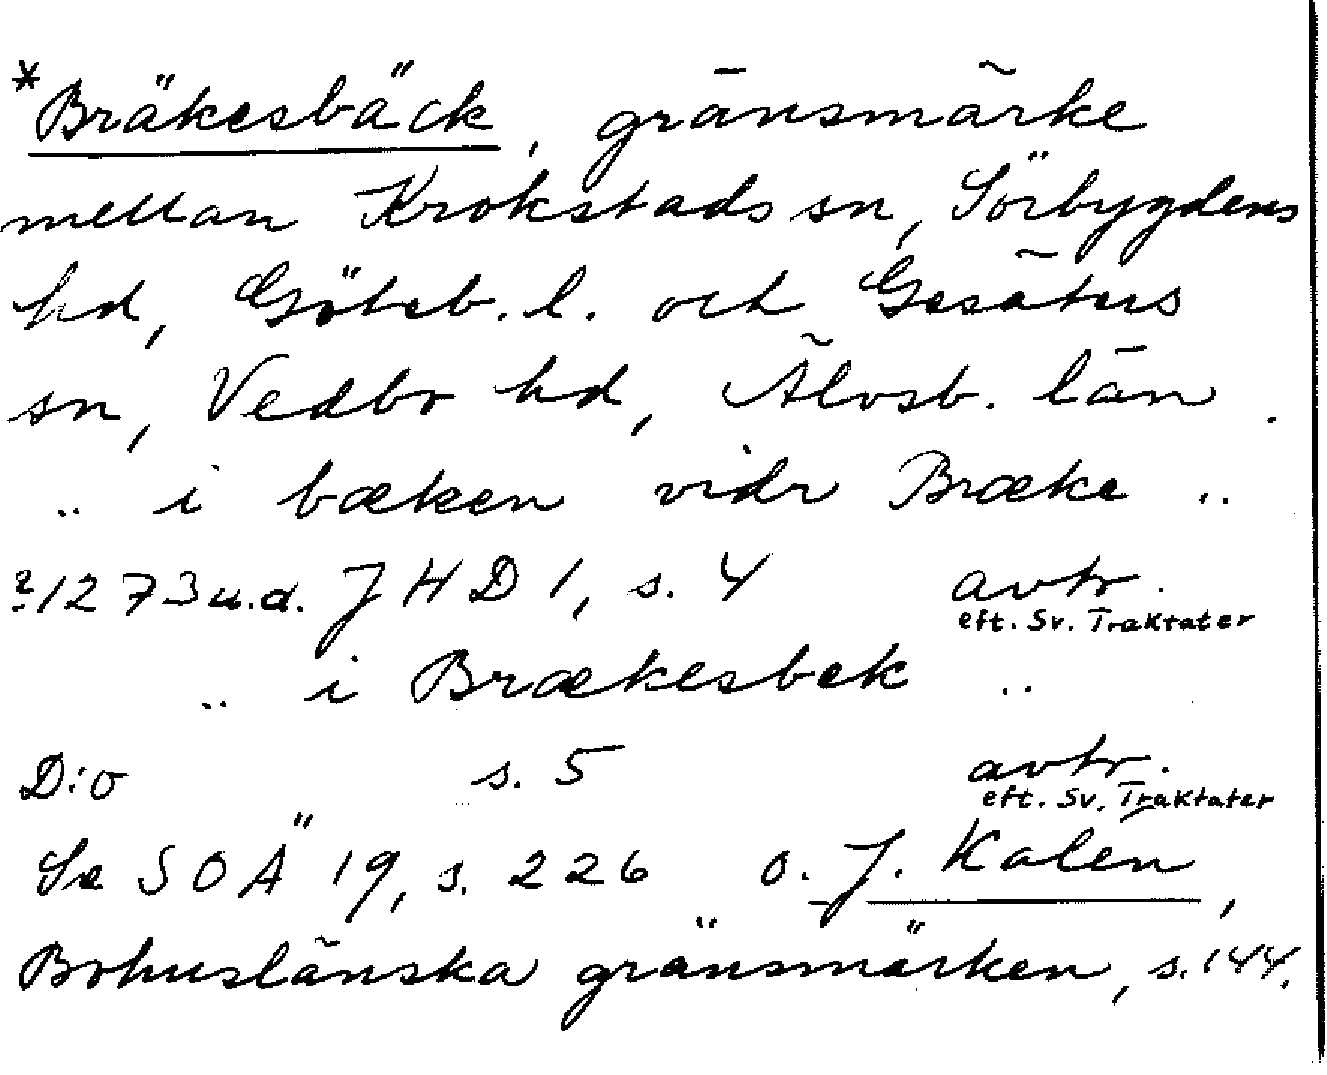 *Bräkesbäck, gränsmärke
mellan Krokstads sn, Sörbygdens
hd, Göteb. l. och Gesäters
sn, Vedbo hd, Älvsb. län.
.. i bæken vidr Bræke ..
?1273 u.d. JHD 1, s. 4 avtr.
eft. Sv. Traktater
.. i Brækesbek ..
D:o s. 5 avtr.
eft. Sv. Traktater
Se SOÄ 19, s. 226 o. J. Kalen,
Bohuslänska gränsmärken, s. 144.